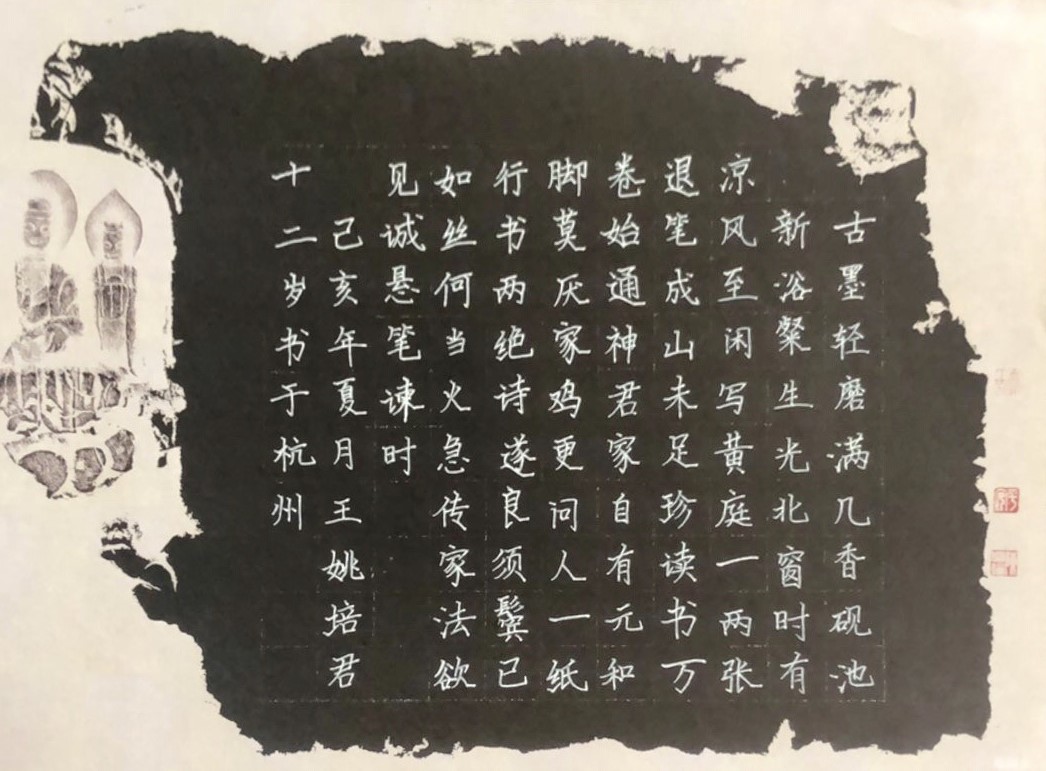 古墨轻磨满几香砚池
新浴粲生光北窗时有
凉风至闲写黄庭一两张
退笔成山未足珍读书万
卷始通神君家自有元和
脚莫厌家鸡更问人一纸
行书两绝诗遂良须鬓已
如丝何当火急传家法欲
见诚悬笔谏时
己亥年夏月王姚培君
十二岁书于杭州